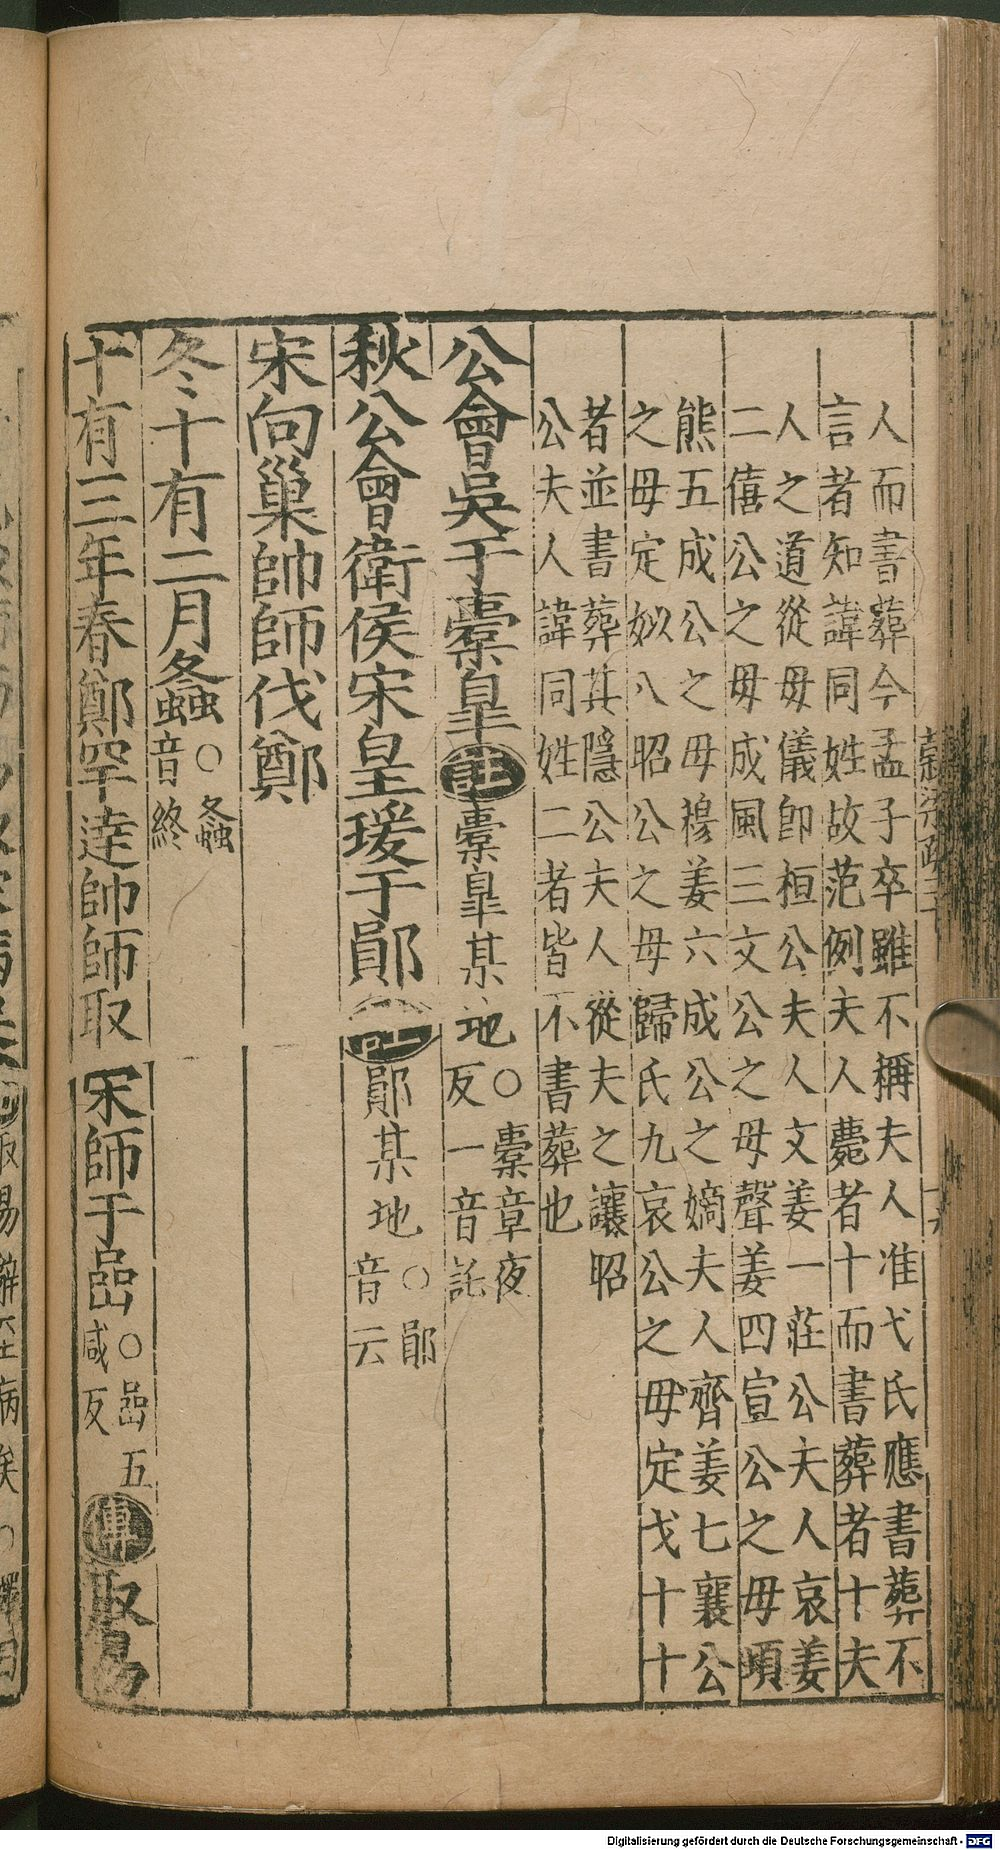 人而書葬今孟子卒雖不稱夫人准弋氏應書葬不
言者知諱同姓故范例夫人薨者十而書葬者十夫
人之道從母儀即桓公夫人文姜一莊公夫人哀姜
二僖公之母成風三文公之母聲姜四宣公之母頃
熊五成公之母穆姜六成公之嫡夫人齊姜七襄公
之母定姒八昭公之母歸氏九哀公之母定弋十十
者並書葬其隱公夫人從夫之讓昭
公夫人諱同姓二者皆不書葬也
公會吳于橐皐 註 橐皐某地○橐章夜
反一音託
秋公會衛侯宋皇瑗于鄖 註 鄖某地○鄖
音云
宋向巢帥師伐鄭
冬十有二月螽○螽
音終
十有三年春鄭罕達帥師取宋師于嵒○嵒五
咸反
傳 取易
Digitalisierung gefördert durch die Deutsche Forschungsgemeinschaft - DFG